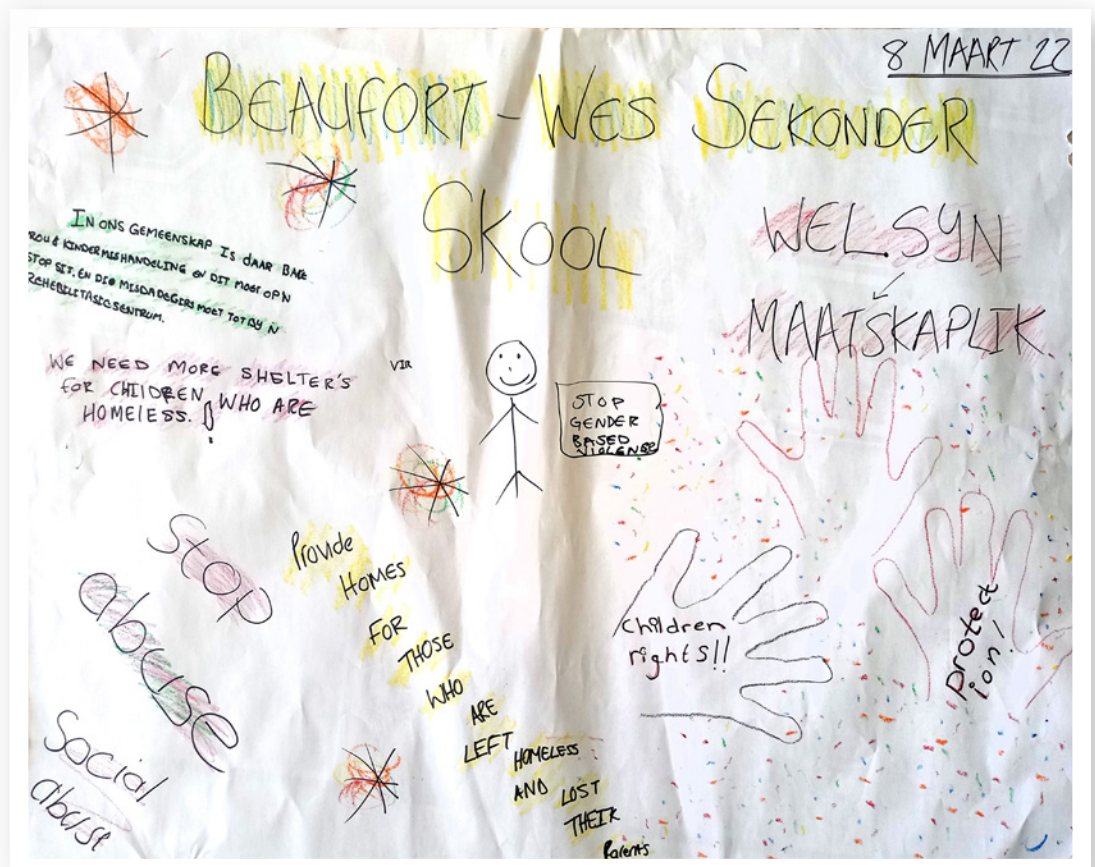 8 MAART 22
BEAUFORT-WES SEKONDER
SKOOL
WELSYN
MAATSKAPLIK
IN ONS GEMEENSKAP IS DAAR BAIE
ROU & KINDERMISHANDELING EN DIT MOET OP N
STOP SIT. EN DIE MISDADEGERS MOET TOT BY N
REHEBILITASIE SENTRUM.
WE NEED MORE SHELTER'S
FOR CHILDREN WHO ARE
HOMELESS.
VIR
STOP
GENDER
BASED
VIOLENSE
Stop
abuse
Social
abuse
Provide
HOMES
FOR
THOSE
WHO
ARE
LEFT
HOMELESS
AND LOST
THEIR
Parents
Children
rights!!
protect
ion!